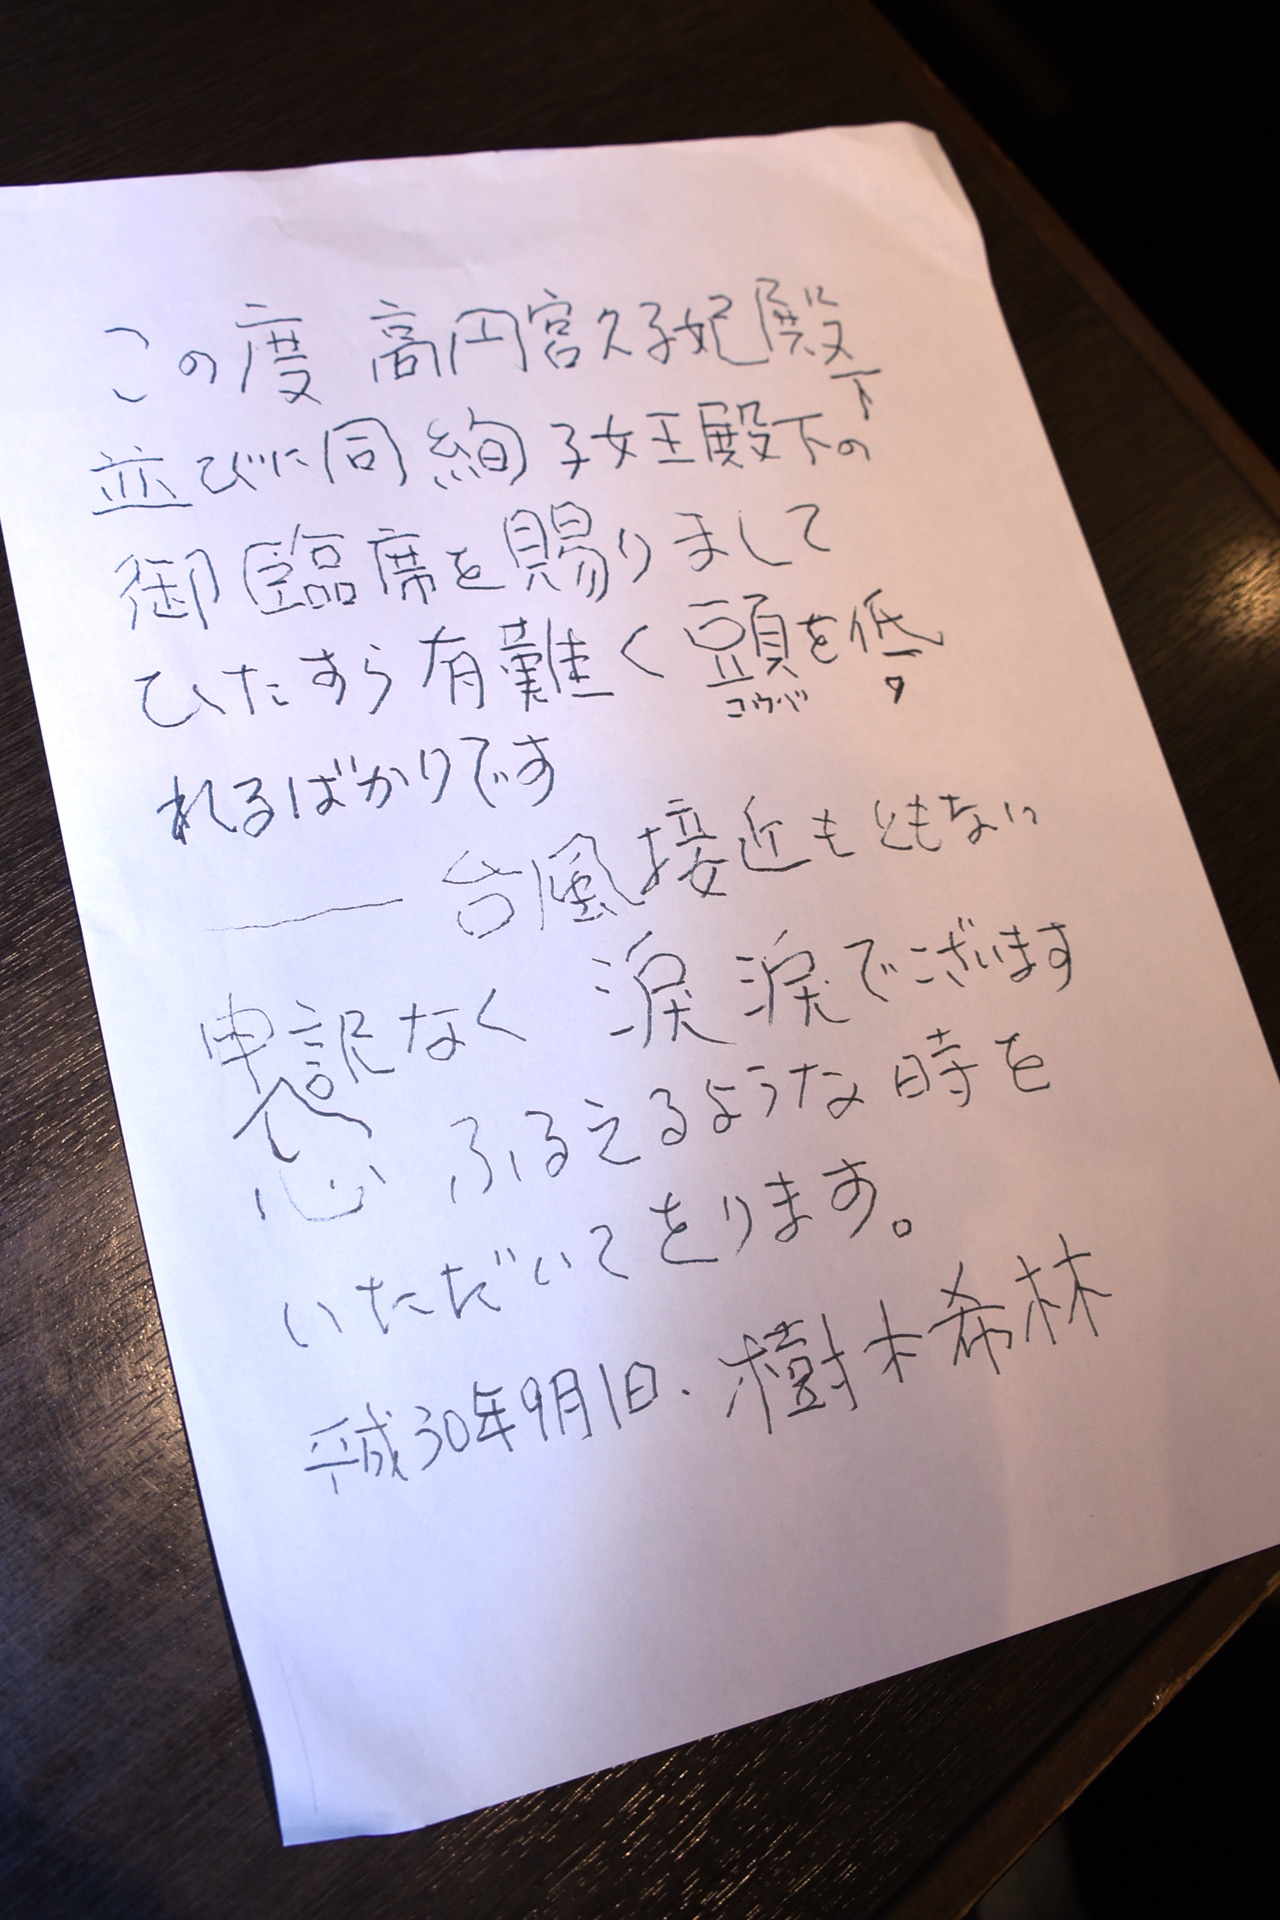 この度 高円宮久子妃殿下
並びに同絢子女王殿下の
御臨席を賜りまして
ひたすら有難く頭を低
コウベ
れるばかりです
台風接近もともない
申訳なく 涙涙でございます
心ふるえるような時を
いただいてをります。
平成30年9月1日.樹木希林